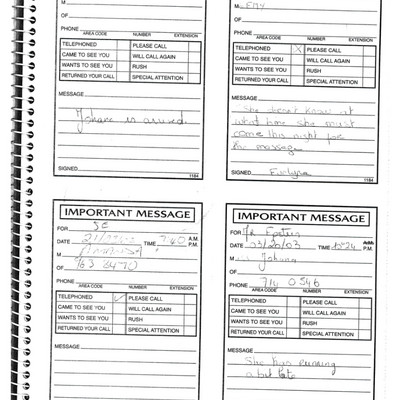 M
OF
PHONE
AREA CODE NUMBER EXTENSION
TELEPHONED PLEASE CALL
CAME TO SEE YOU WILL CALL AGAIN
WANTS TO SEE YOU RUSH
RETURNED YOUR CALL SPECIAL ATTENTION
MESSAGE
Johana is arrived.
SIGNED
1184
M
OF
PHONE
AREA CODE NUMBER EXTENSION
TELEPHONED X PLEASE CALL
CAME TO SEE YOU WILL CALL AGAIN
WANTS TO SEE YOU RUSH
RETURNED YOUR CALL SPECIAL ATTENTION
MESSAGE
She doesn't know at
what time she must
come this night for
the massage
SIGNED
1184
IMPORTANT MESSAGE
FOR JE
DATE TIME 7:40 A.M. P.M.
M
OF 763 8470
PHONE
AREA CODE NUMBER EXTENSION
TELEPHONED ✓ PLEASE CALL
CAME TO SEE YOU WILL CALL AGAIN
WANTS TO SEE YOU RUSH
RETURNED YOUR CALL SPECIAL ATTENTION
MESSAGE
IMPORTANT MESSAGE
FOR Mr Epstein
DATE 03/20/03 TIME A.M. P.M.
M Johana
OF
PHONE 714 0546
AREA CODE NUMBER EXTENSION
TELEPHONED PLEASE CALL
CAME TO SEE YOU WILL CALL AGAIN
WANTS TO SEE YOU RUSH
RETURNED YOUR CALL SPECIAL ATTENTION
MESSAGE
She is running
a bit late